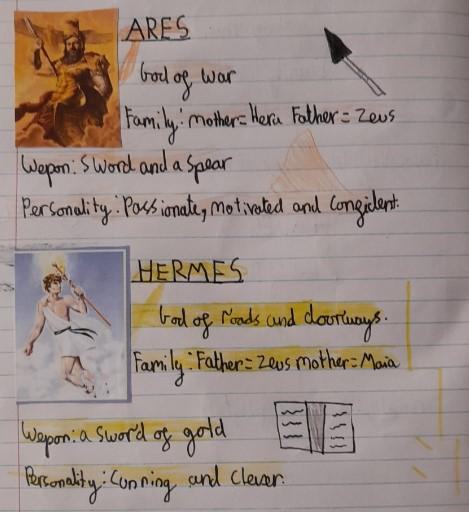 ARES
God of war
Family: mother= Hera Father = Zeus
Wepon: Sword and a Spear
Personality: Passionate, motivated and congident.
HERMES
God of roads and doorways.
Family: Father= Zeus mother= Maia
Wepon: a sword of gold
Personality: Cunning and clever.